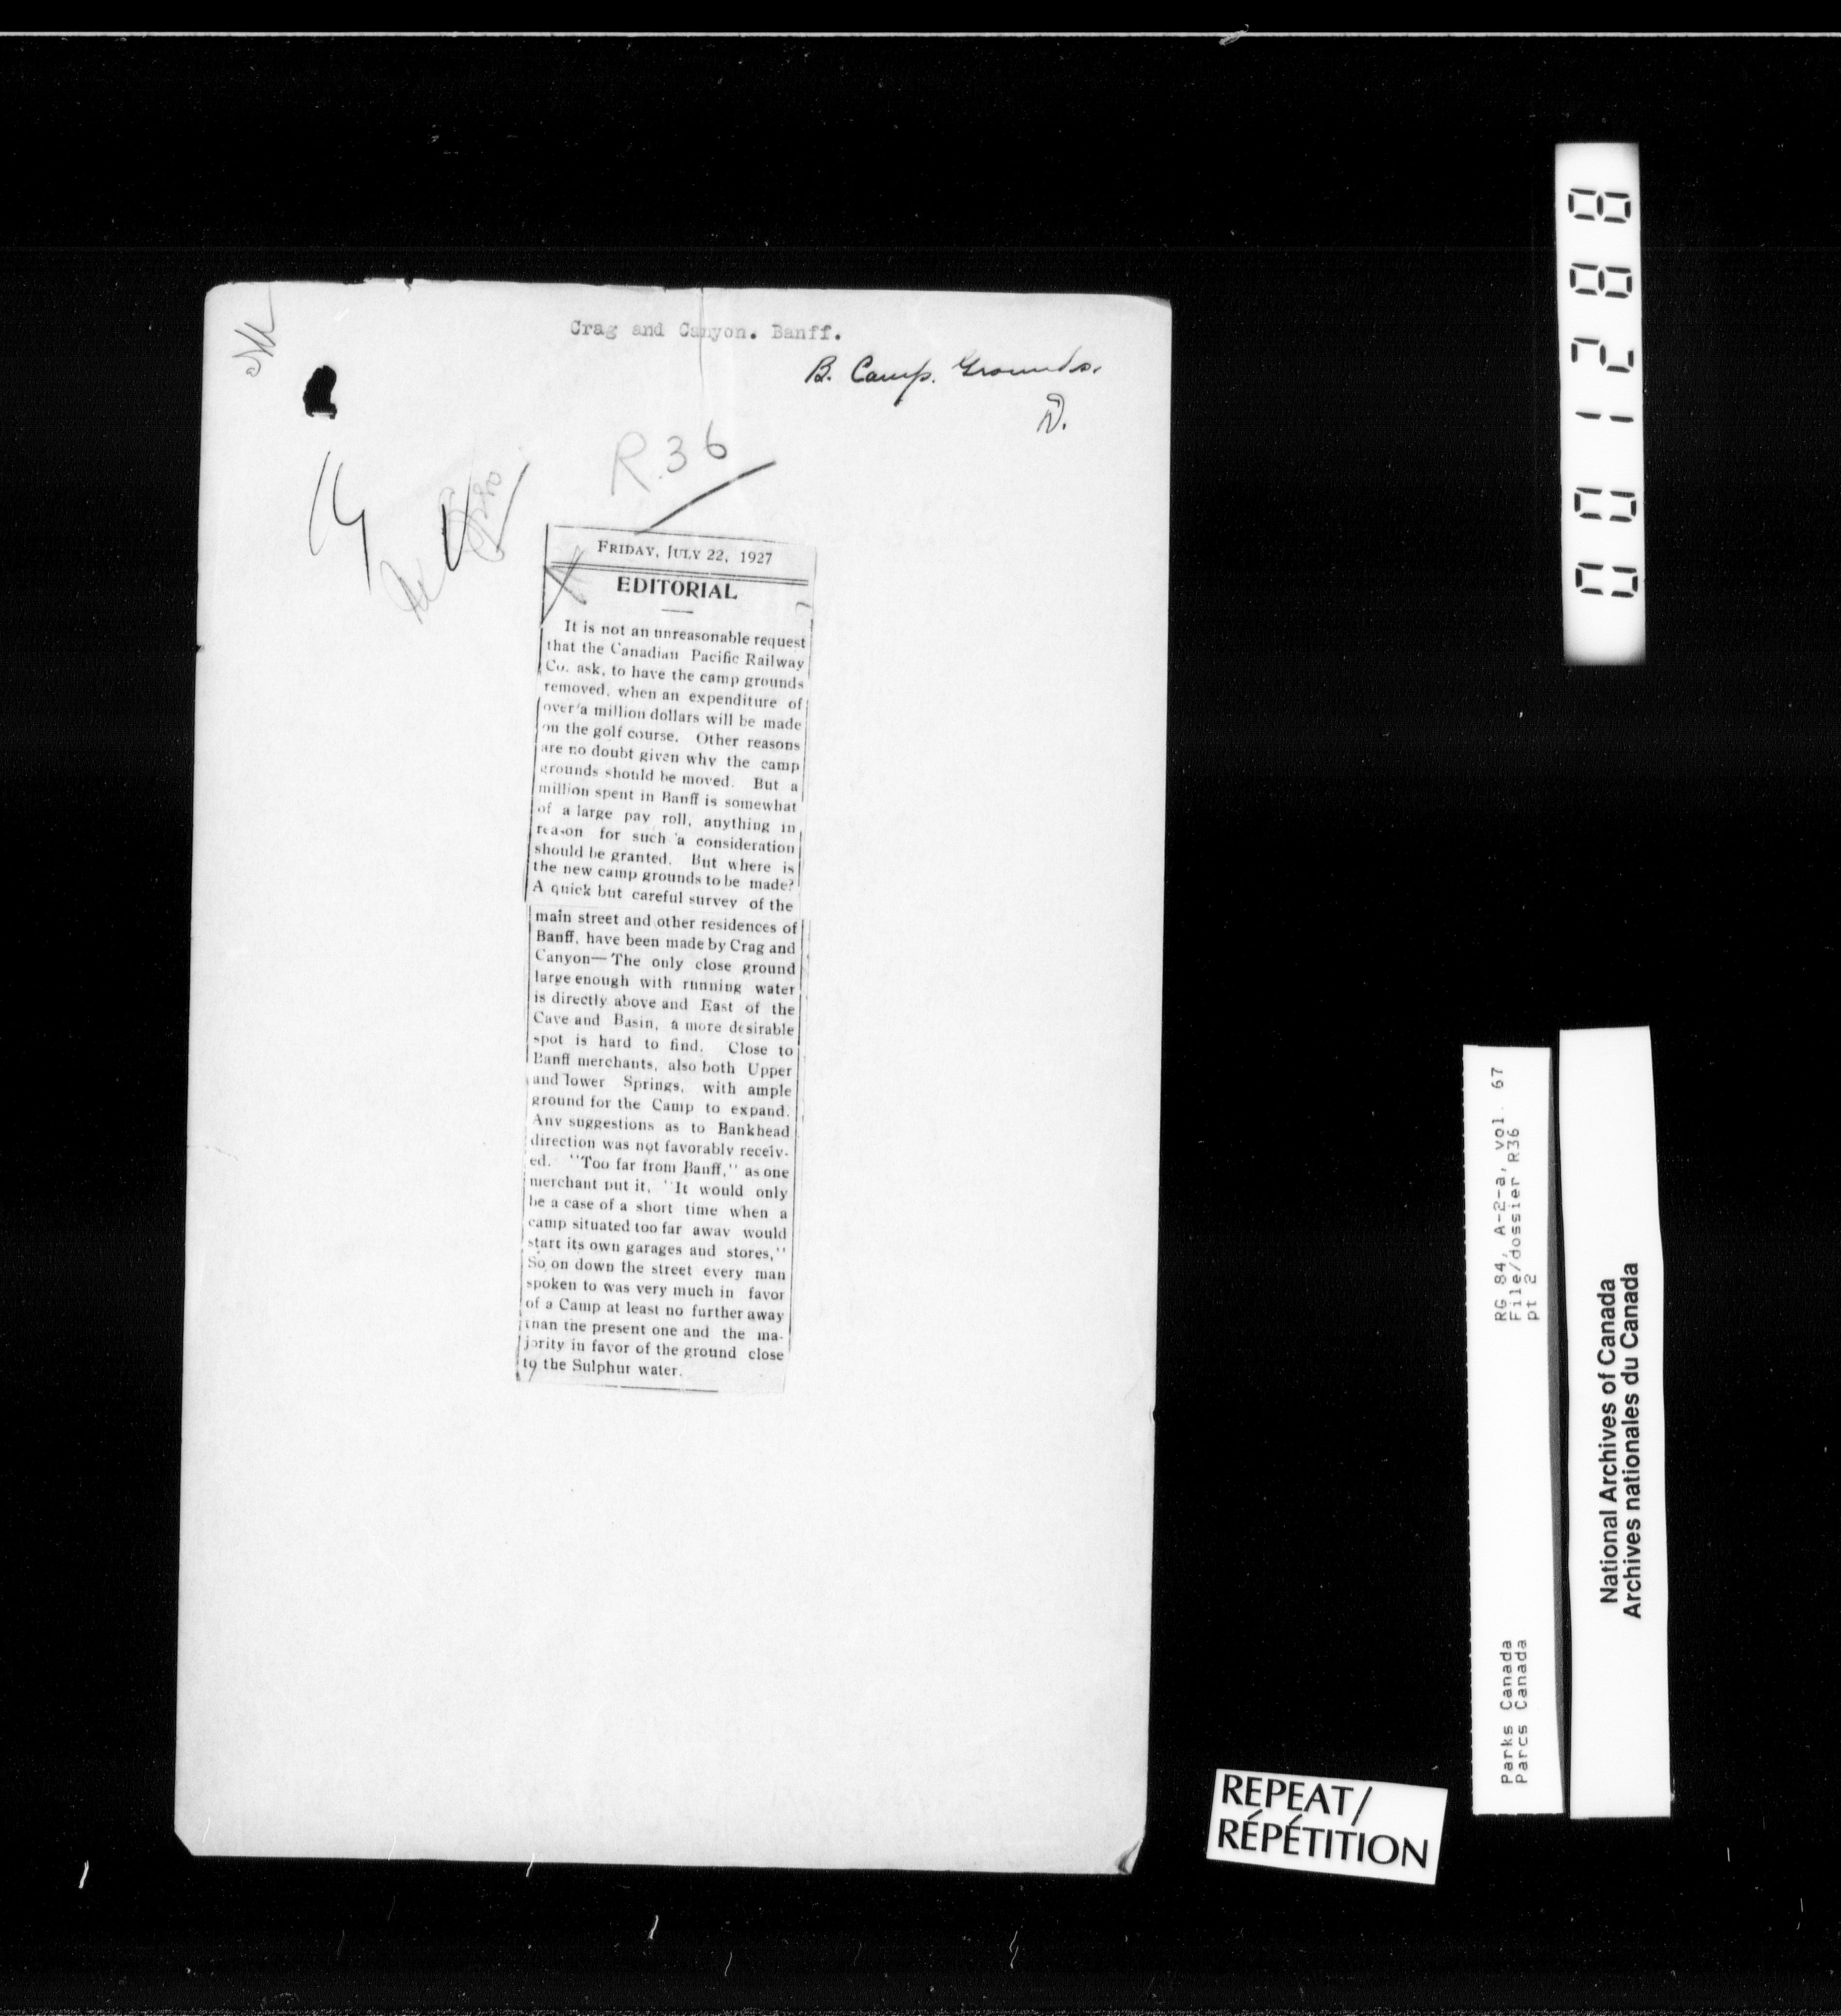 Crag and Canyon. Banff.
B. Camp. Grounds.
D.
R.36
FRIDAY, JULY 22, 1927
EDITORIAL
It is not an unreasonable request
that the Canadian Pacific Railway
Co. ask, to have the camp grounds
removed, when an expenditure of
over a million dollars will be made
on the golf course. Other reasons
are no doubt given why the camp
grounds should be moved. But a
million spent in Banff is somewhat
of a large pay roll, anything in
reason for such a consideration
should be granted. But where is
the new camp grounds to be made?
A quick but careful survey of the
main street and other residences of
Banff, have been made by Crag and
Canyon—The only close ground
large enough with running water
is directly above and East of the
Cave and Basin, a more desirable
spot is hard to find. Close to
Banff merchants, also both Upper
and lower Springs, with ample
ground for the Camp to expand.
Any suggestions as to Bankhead
direction was not favorably receiv-
ed. "Too far from Banff," as one
merchant put it, "It would only
be a case of a short time when a
camp situated too far away would
start its own garages and stores,"
So on down the street every man
spoken to was very much in favor
of a Camp at least no further away
than the present one and the ma-
jority in favor of the ground close
to the Sulphur water.
001288
RG 84, A-2-a, vol. 67
File/dossier R36
pt 2
Parks Canada
Parcs Canada
National Archives of Canada
Archives nationales du Canada
REPEAT/
RÉPÉTITION